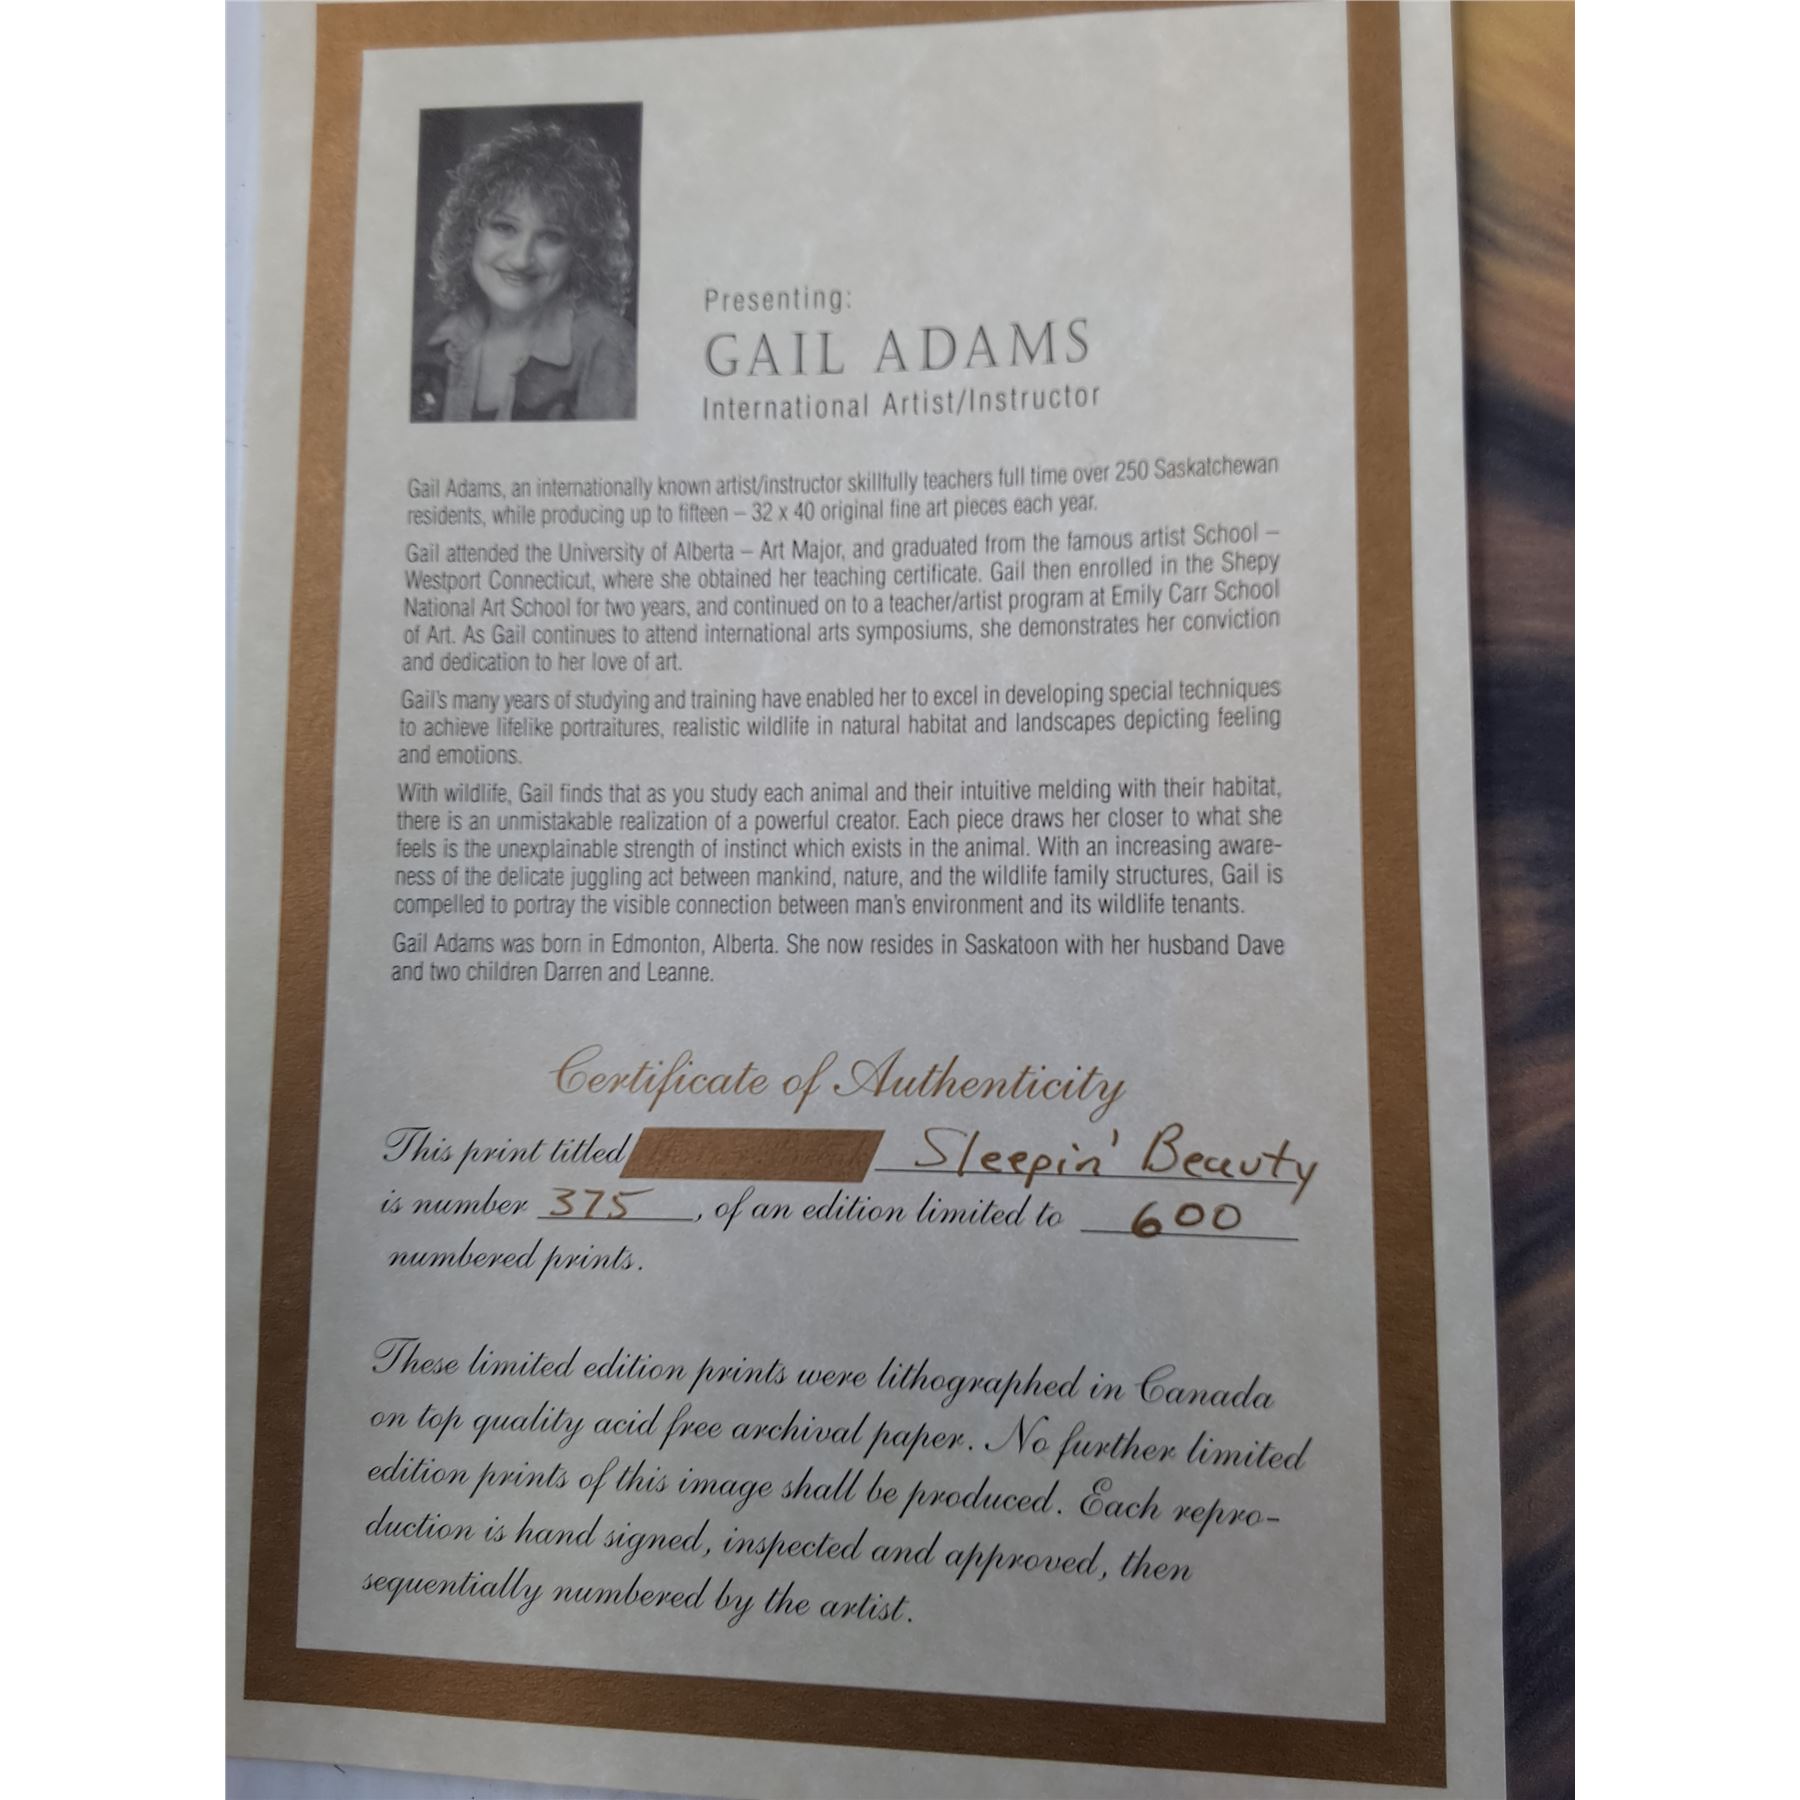 Presenting:
GAIL ADAMS
International Artist/Instructor
Gail Adams, an internationally known artist/instructor skillfully teachers full time over 250 Saskatchewan
residents, while producing up to fifteen – 32 x 40 original fine art pieces each year.
Gail attended the University of Alberta – Art Major, and graduated from the famous artist School –
Westport Connecticut, where she obtained her teaching certificate. Gail then enrolled in the Shepy
National Art School for two years, and continued on to a teacher/artist program at Emily Carr School
of Art. As Gail continues to attend international arts symposiums, she demonstrates her conviction
and dedication to her love of art.
Gail's many years of studying and training have enabled her to excel in developing special techniques
to achieve lifelike portraitures, realistic wildlife in natural habitat and landscapes depicting feeling
and emotions.
With wildlife, Gail finds that as you study each animal and their intuitive melding with their habitat,
there is an unmistakable realization of a powerful creator. Each piece draws her closer to what she
feels is the unexplainable strength of instinct which exists in the animal. With an increasing aware-
ness of the delicate juggling act between mankind, nature, and the wildlife family structures, Gail is
compelled to portray the visible connection between man's environment and its wildlife tenants.
Gail Adams was born in Edmonton, Alberta. She now resides in Saskatoon with her husband Dave
and two children Darren and Leanne.
Certificate of Authenticity
This print titled Sleepin' Beauty
is number 375, of an edition limited to 600
numbered prints.
These limited edition prints were lithographed in Canada
on top quality acid free archival paper. No further limited
edition prints of this image shall be produced. Each repro-
duction is hand signed, inspected and approved, then
sequentially numbered by the artist.